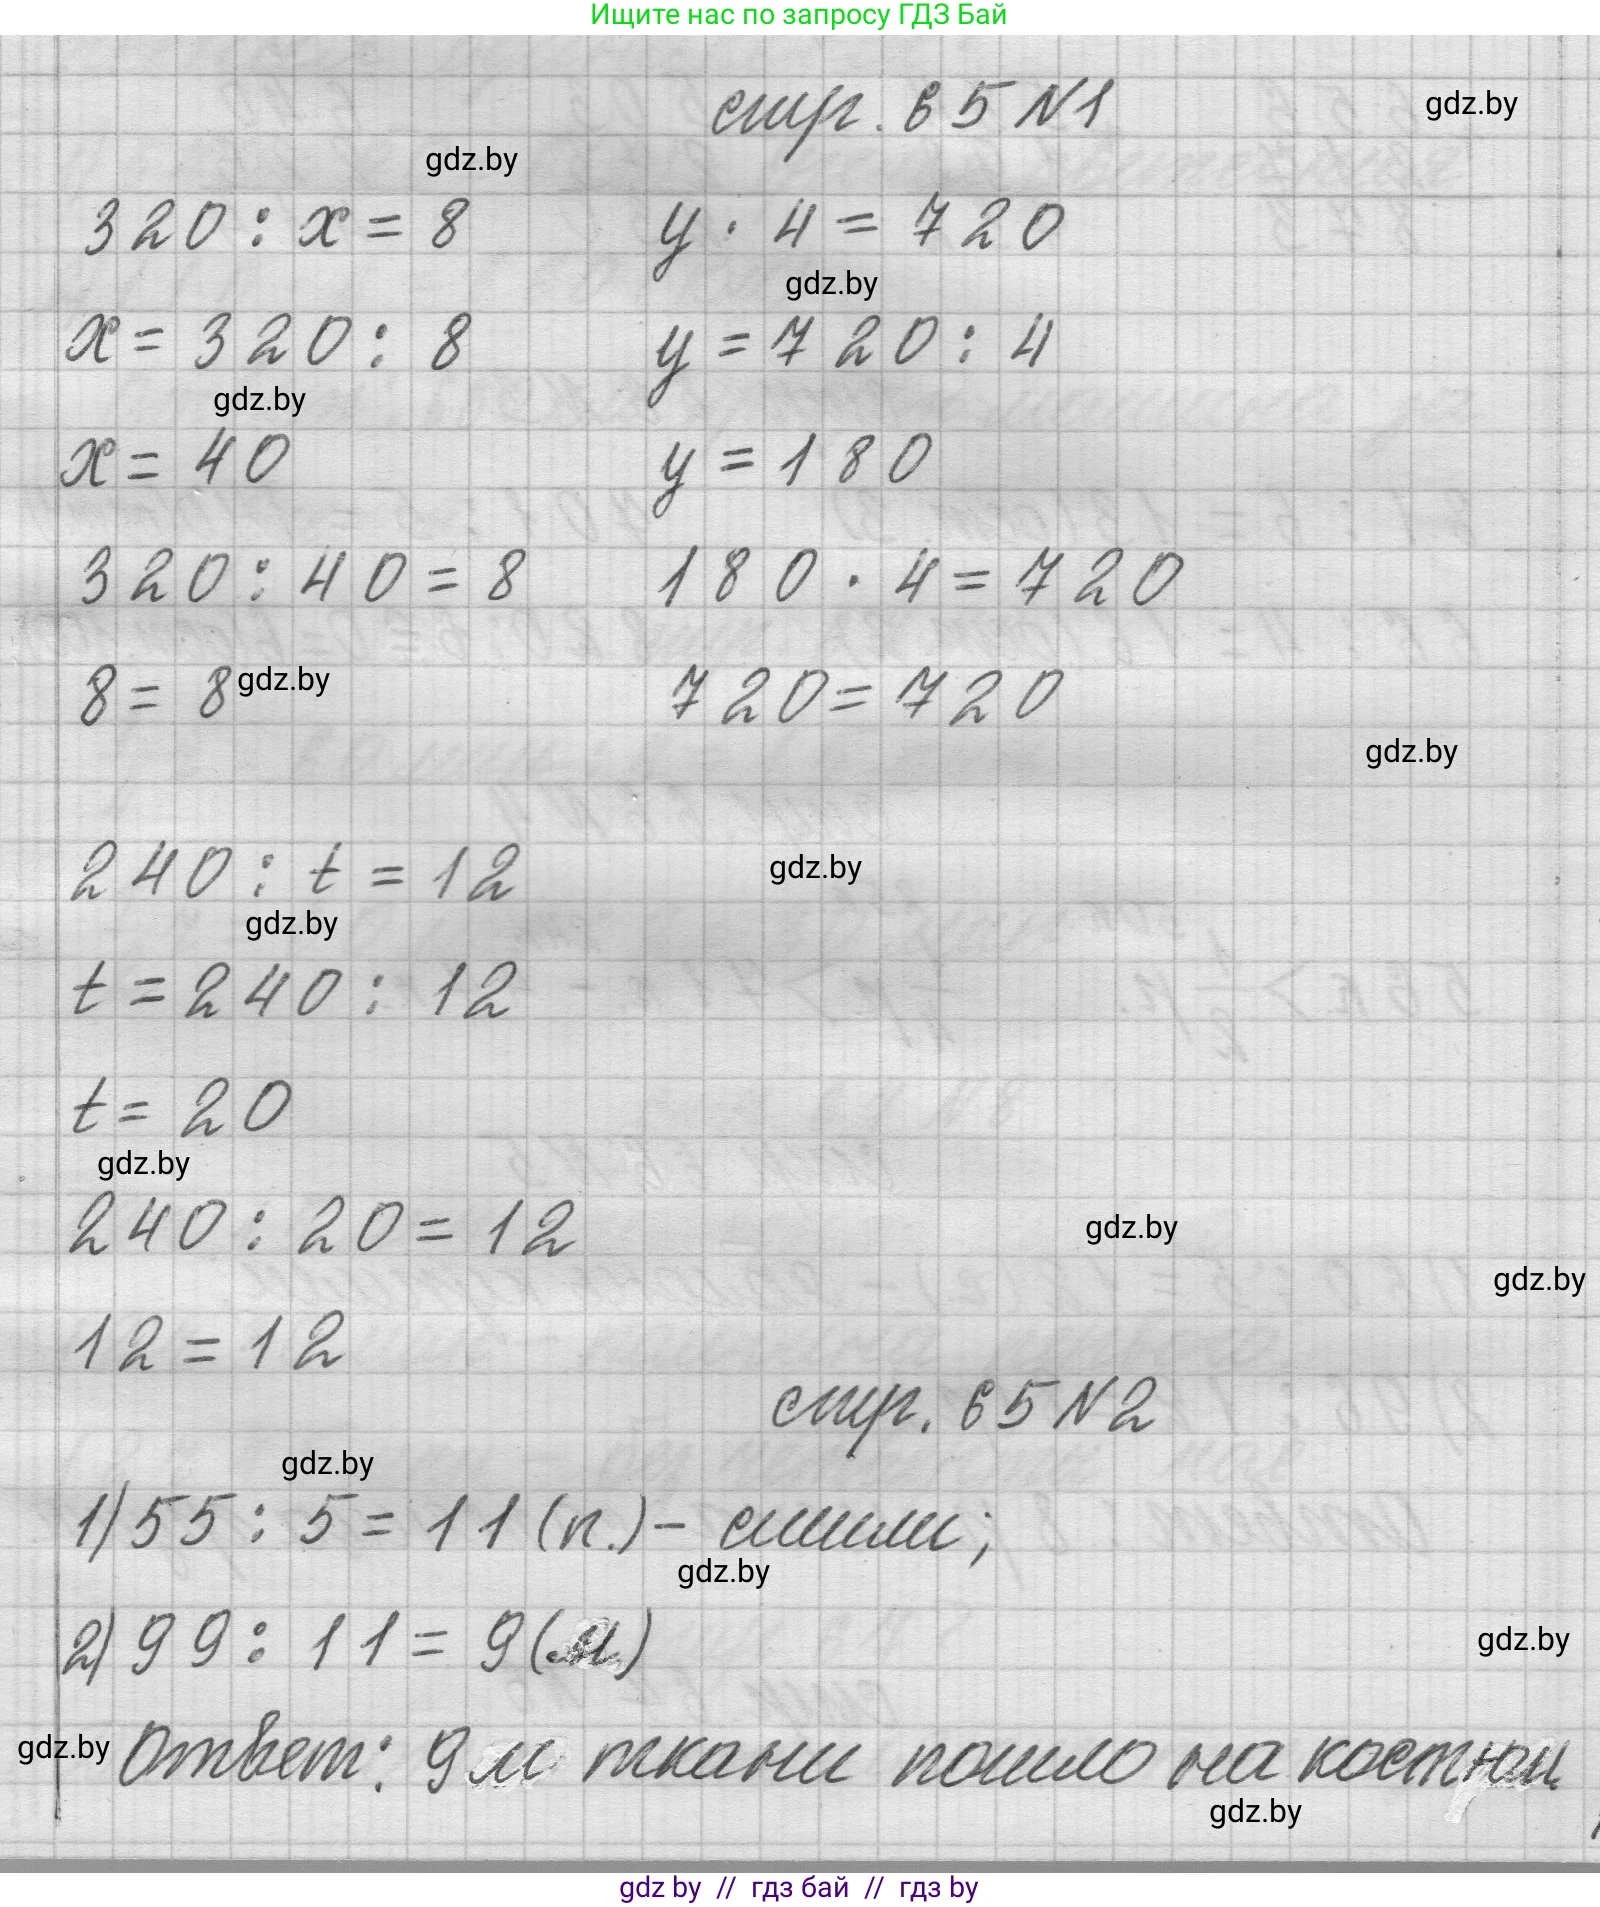 Ищите нас по запросу ГДЗ Бай
стр. 65 N1
gdz.by
gdz.by
320 : x = 8
y · 4 = 720
gdz.by
x = 320 : 8
y = 720 : 4
gdz.by
x = 40
y = 180
320 : 40 = 8
180 · 4 = 720
8 = 8
gdz.by
720 = 720
gdz.by
240 : t = 12
gdz.by
gdz.by
t = 240 : 12
t = 20
gdz.by
240 : 20 = 12
gdz.by
gdz.by
12 = 12
стр. 65 N2
gdz.by
1) 55 : 5 = 11 (п.) - сшили;
gdz.by
2) 99 : 11 = 9 (м)
gdz.by
gdz.by
Ответ: 9 м ткани пошло на костюм
gdz.by
gdz by // гдз бай // гдз by